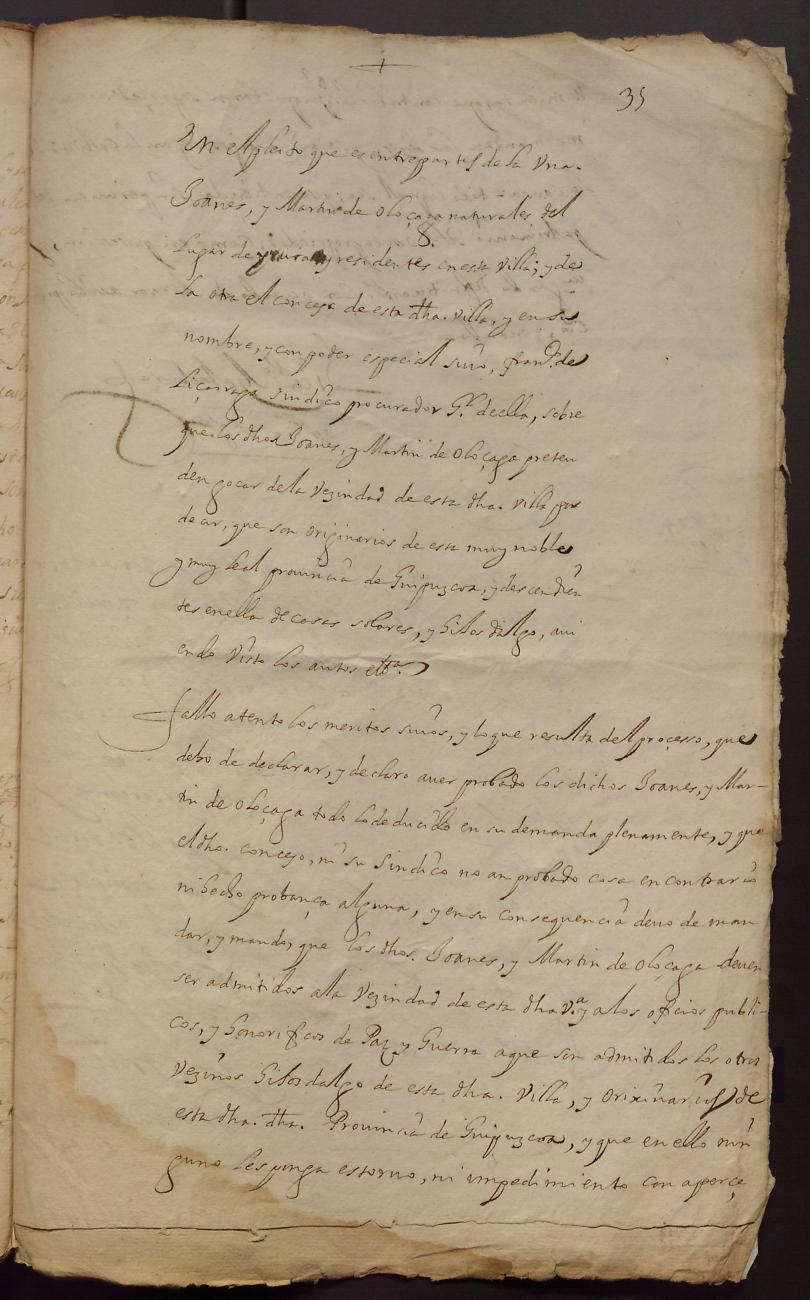 +
35
En el pleito que es entre partes de la Vna.
Joanes, y Martin de Oloçaga naturales del
Lugar de y residentes en esta Villa; y de
La otra el concejo de esta dha. Villa, y en su
nombre, y con poder especial suio, Franco. de
Liçarraga sindico procurador Gl. de ella, sobre
que los dhos Joanes, y Martin de Oloçaga preten
den goçar de la Vezindad de esta dha. Villa por
deçir, que son originarios de esta muy noble
y muy Leal prouincia de Guipuzcoa, y descendien
tes en ella de casas solares, y hijos dalgo, aui
endo Visto los autos etta.
Fallo atento los meritos suios, y lo que resulta del processo, que
debo de declarar, y declaro auer probado los dichos Joanes, y Mar-
tin de Oloçaga todo lo deducido en su demanda plenamente, y que
el dho. concejo, ni su Sindico no an probado cosa en contrario
ni hecho probança alguna, y en su consequencia deuo de man
dar, y mando, que los dhos. Joanes, y Martin de Oloçaga deuen
ser admitidos a la Vezindad de esta dha Va. y a los ofiçios publi-
cos, y honorificos de Paz, y Guerra a que son admitidos los otros
Vezinos hijosdalgo de esta dha. Villa, y orixinarios de
esta dha. dha. Prouincia de Guipuzcoa, y que en ello nin
guno les ponga estoruo, ni impedimiento con aperçe